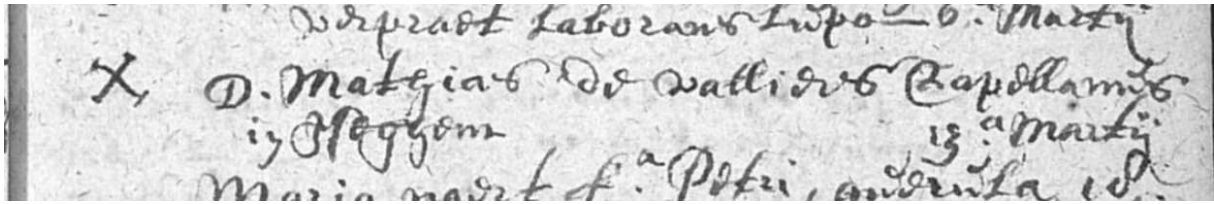 verpraet Laborans Lupo — 6.ª Martij
X, D. Mathias de vallieres Capellanus
in Iseghem 13.ª Martij
Maria naert f.ª Petri, querula 18.